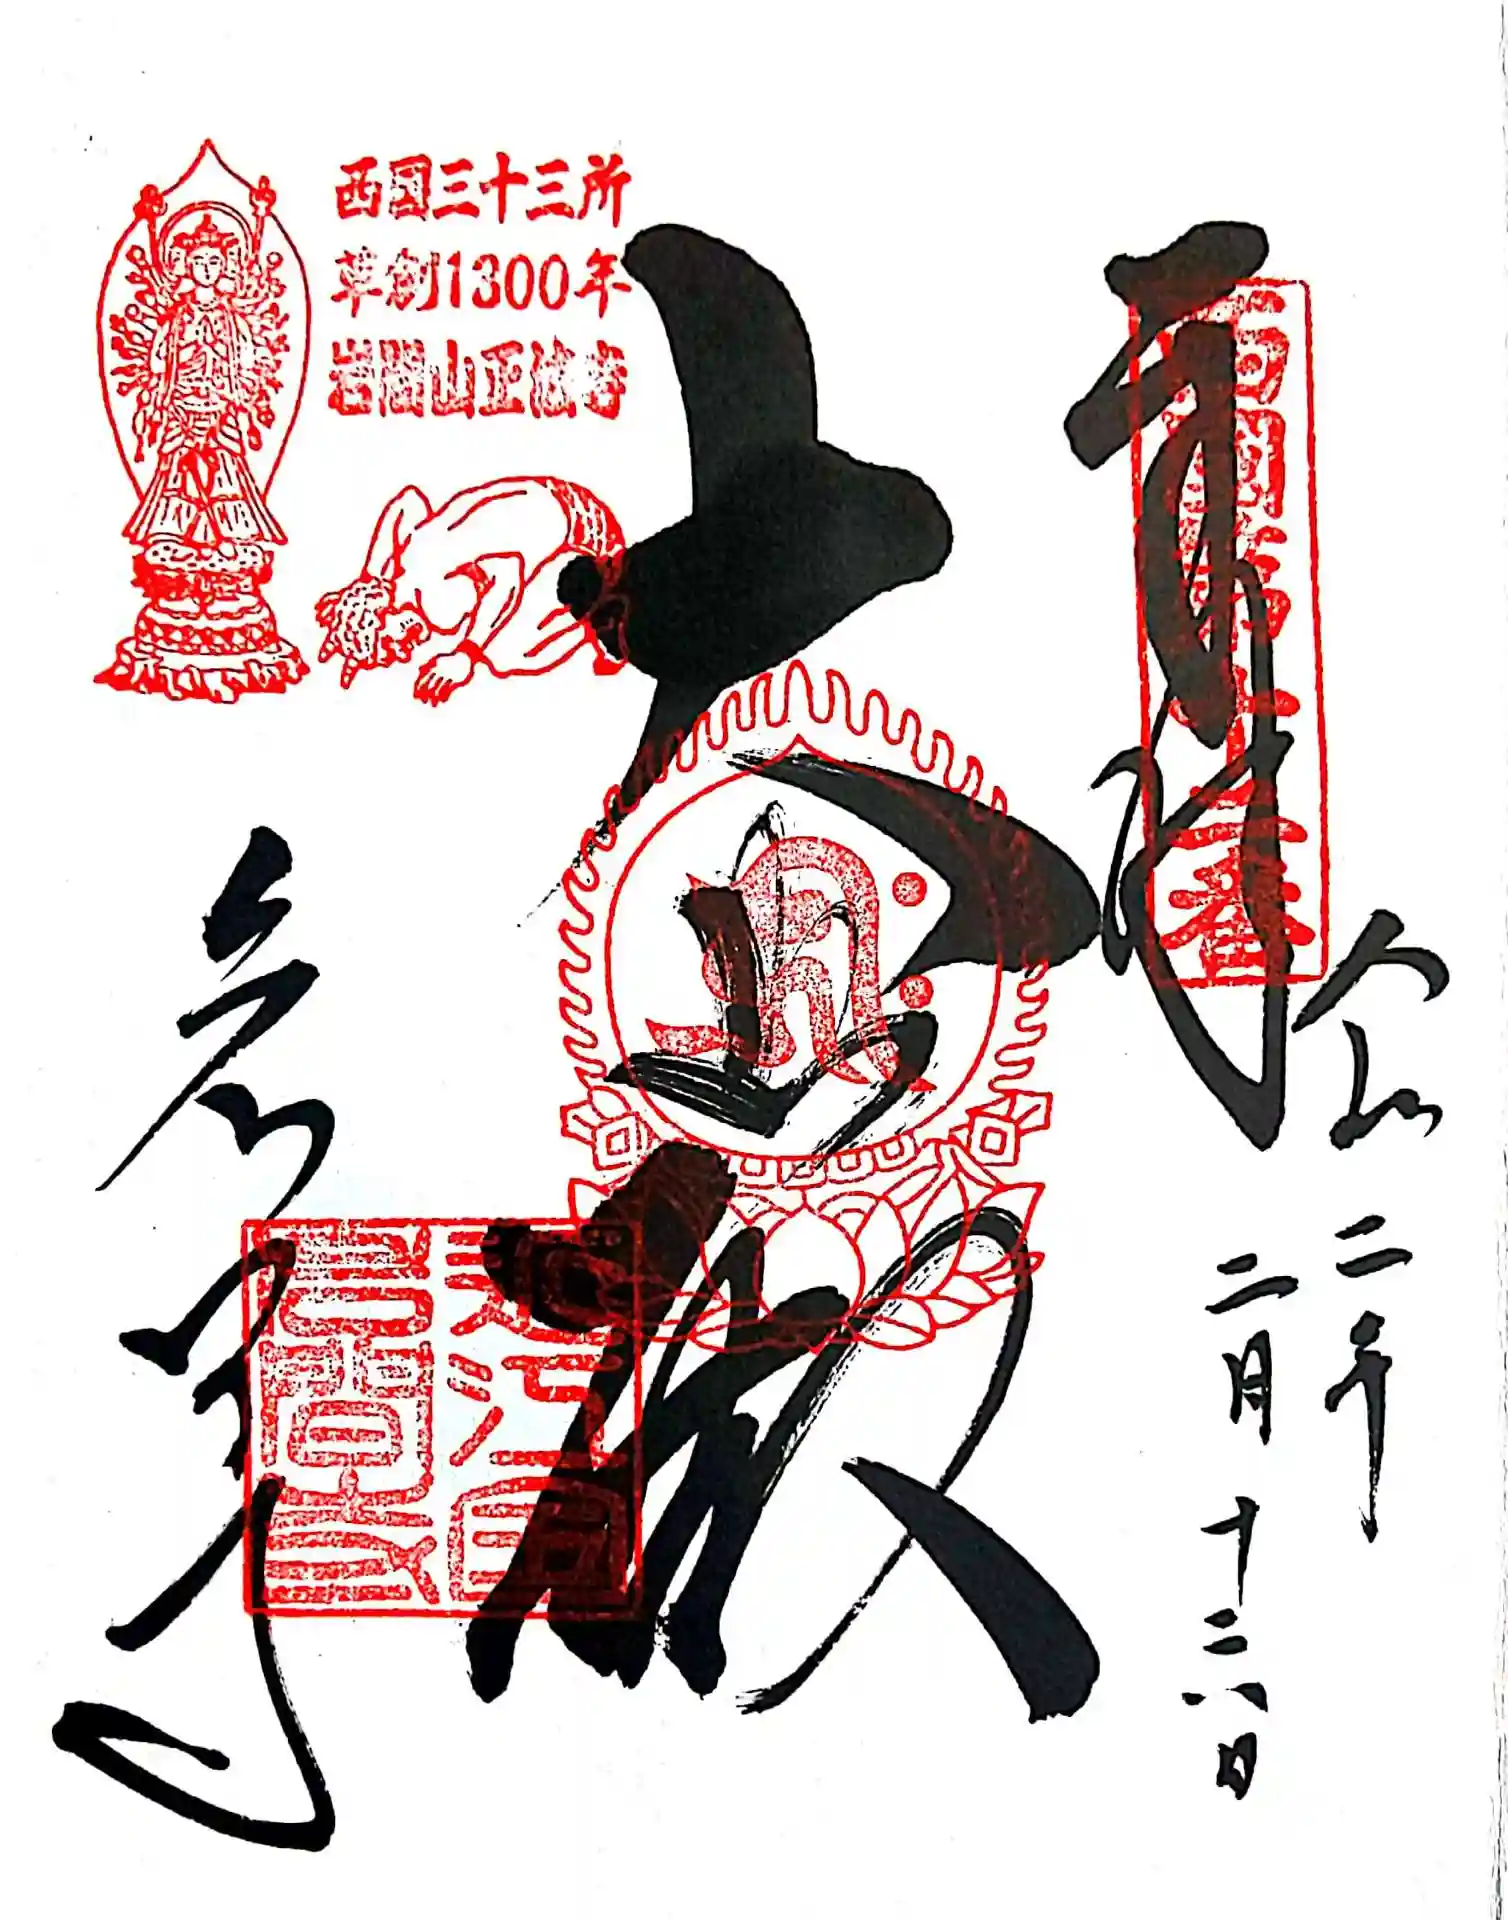 奉拝
西国第十二番
令和二年
二月十六日
大悲殿
岩間寺
西国三十三所
草創1300年
岩間山正法寺
近江国
岩間寺